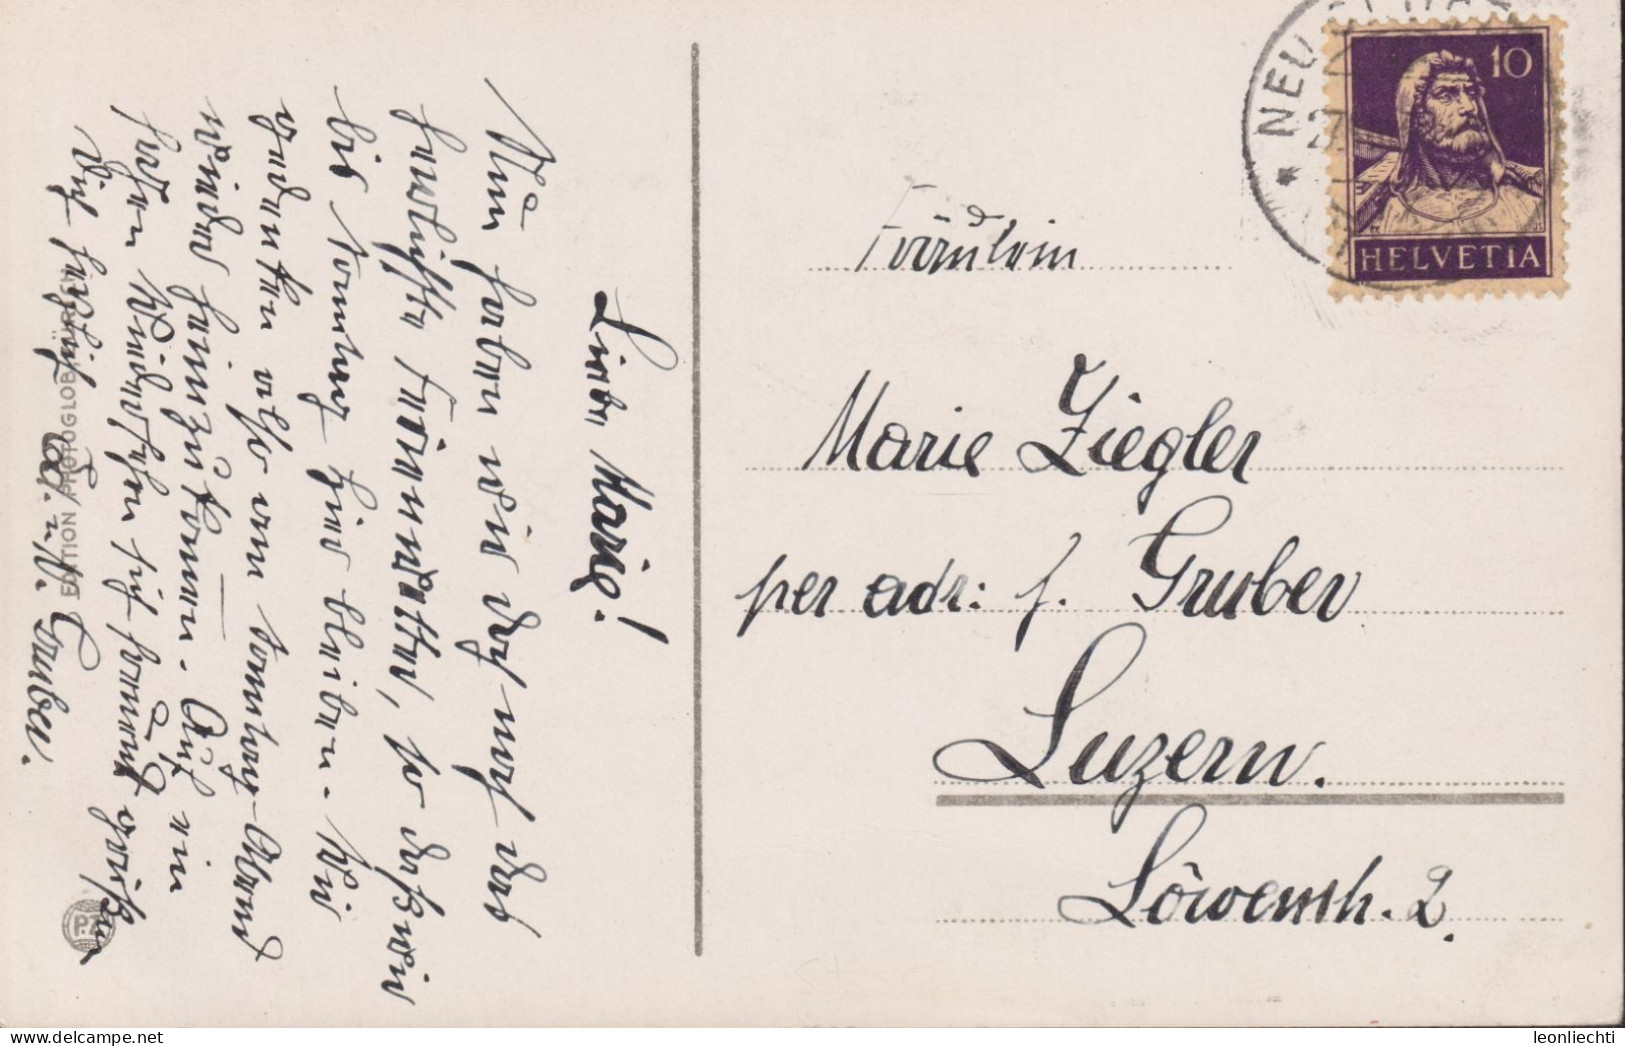 Liebe Marie!
Nun haben wir doch noch das
herrlichste Ferienwetter, so daß wir
bis Sonntag hier bleiben. Wir
gedenken also am Sonntag-Abend
wieder heimzukommen. Auf ein
frohes Wiedersehen sich freuend grüßen
Dich herzlich
A. u. W. Gruber.
EDITION PHOTOGLOB ZÜRICH
P.Z
Fräulein
Marie Ziegler
per adr: f. Gruber
Luzern.
Löwenstr. 2.
10
HELVETIA